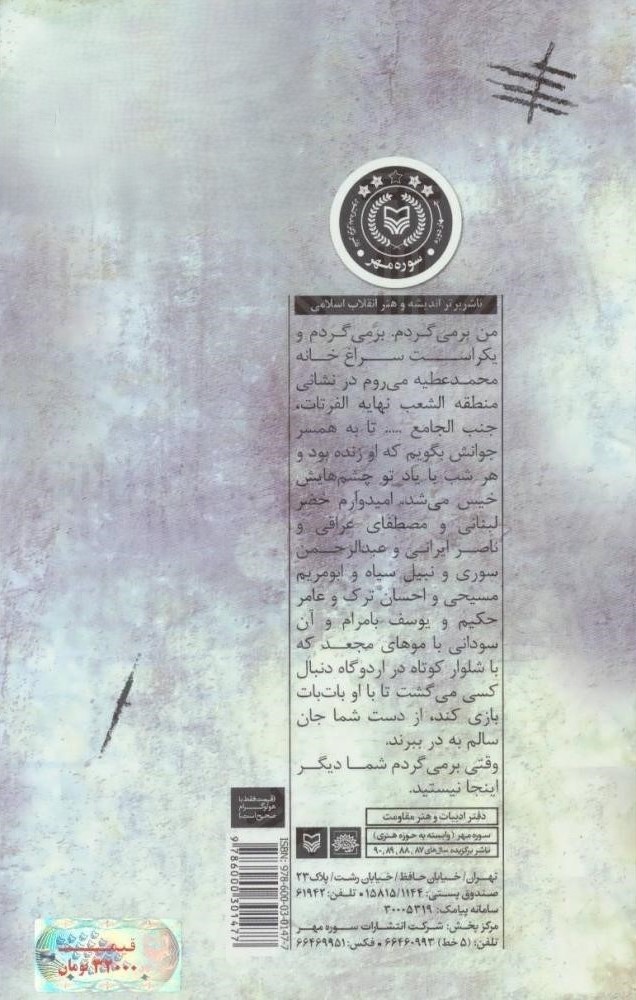 سوره مهر
ناشر برتر اندیشه و هنر انقلاب اسلامی
من برمی‌گردم. برمی‌گردم و
یکراست سراغ خانه
محمدعطیه می‌روم در نشانی
منطقه الشعب نهایه الفرتات،
جنب الجامع .... تا به همسر
جوانش بگویم که او زنده بود و
هر شب با یاد تو چشم‌هایش
خیس می‌شد. امیدوارم خضر
لبنانی و مصطفای عراقی و
ناصر ایرانی و عبدالرحمن
سوری و نبیل سیاه و ابومریم
مسیحی و احسان ترک و عامر
حکیم و یوسف بامرام و آن
سودانی با موهای مجعد که
با شلوار کوتاه در اردوگاه دنبال
کسی می‌گشت تا با او بات‌بات
بازی کند، از دست شما جان
سالم به در ببرند.
وقتی برمی‌گردم شما دیگر
اینجا نیستید.
دفتر ادبیات و هنر مقاومت
سوره مهر: (وابسته به حوزه هنری)
ناشر برگزیده سال‌های ۸۷، ۸۸، ۸۹، ۹۰
تهران/ خیابان حافظ/ خیابان رشت/ پلاک ۲۳
صندوق پستی: ۱۵۸۱۵/۱۱۴۴ • تلفن: ۶۱۹۴۲
سامانه پیامک: ۳۰۰۰۵۳۱۹
مرکز پخش: شرکت انتشارات سوره مهر
تلفن: (۵ خط) ۶۶۴۶۰۹۹۳ • فکس: ۶۶۴۶۹۹۵۱
قیمت فقط با
هولوگرام
صحیح است
ISBN: 978-600-03-0147-7
9786000301477
قیمت
۳۲۰۰۰ تومان